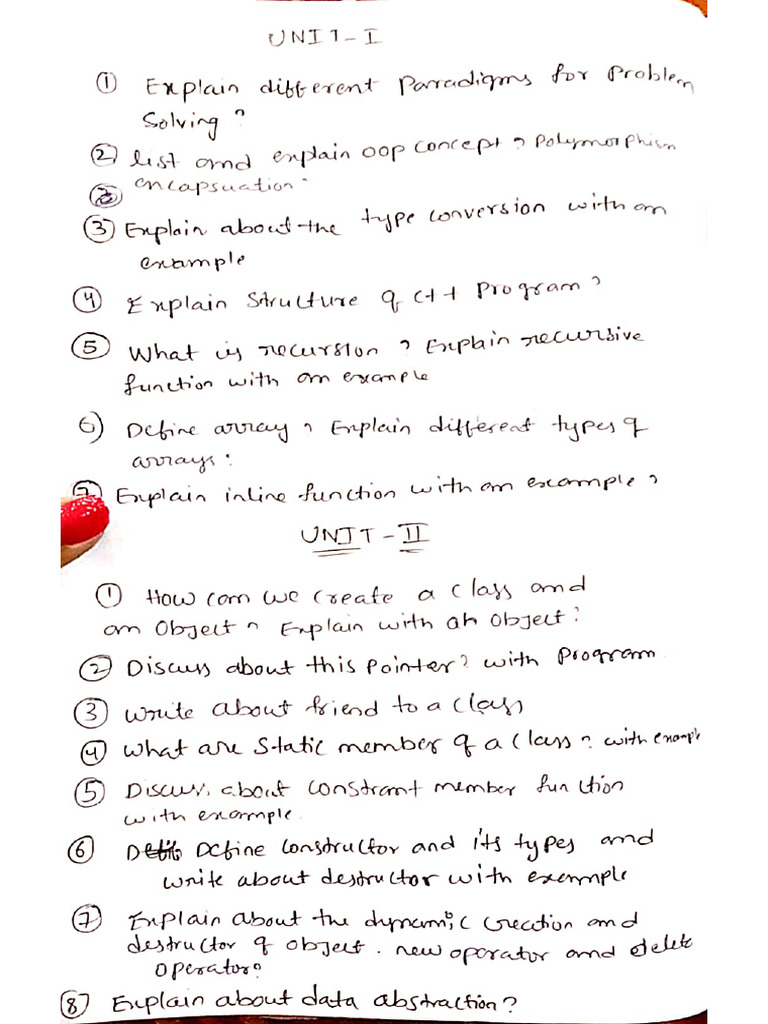 UNIT-I
① Explain different Paradigms for Problem
Solving?
② list and explain oop concept? Polymorphism
encapsuation.
③ Explain about the type conversion with an
example
④ Explain Structure of C++ Program?
⑤ What is recursion? Explain recursive
function with an example
6) Define array? Explain different types of
arrays.
⑦ Explain inline function with an example?
UNIT-II
① How can we create a class and
an object? Explain with an object?
② Discuss about this Pointer? with Program
③ write about friend to a class
④ what are static member of a class? with example
⑤ Discuss about constrant member function
with example.
⑥ Define constructor and its types and
write about destructor with example
⑦ Explain about the dynamic creation and
destructor of object. new operator and delete
operator?
⑧ Explain about data abstraction?